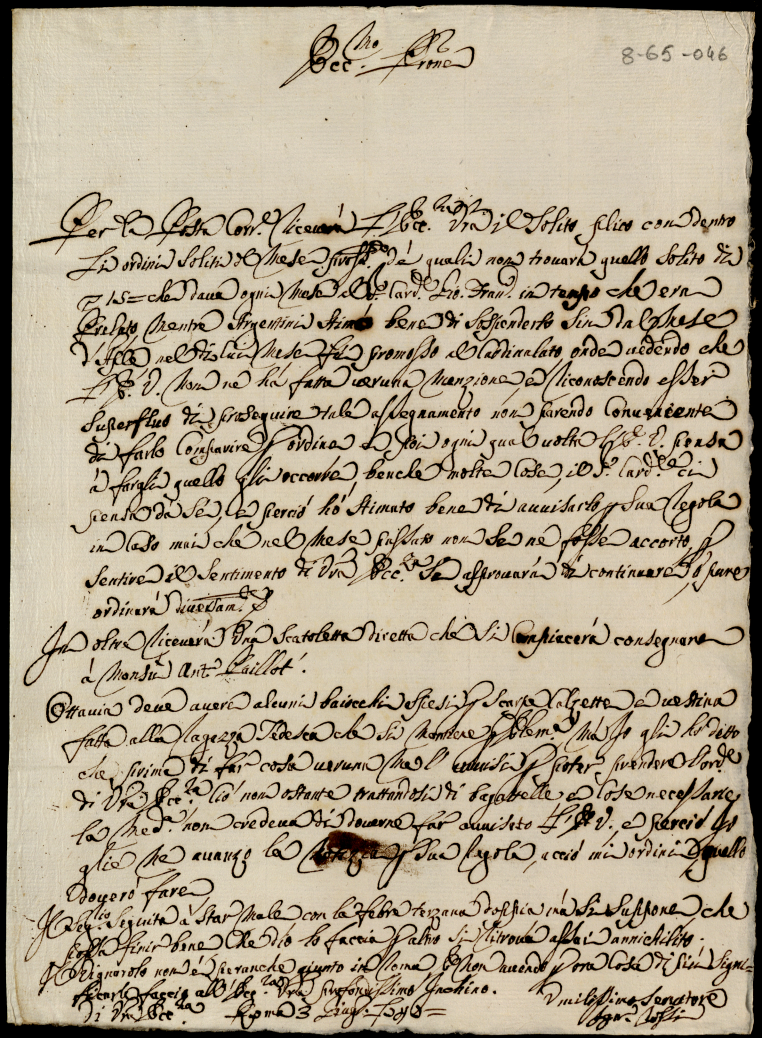 8-65-046
Ecc.mo Prone
Per la Posta Corr.e riceverà l'Ecc.za Vra il Solito plico con dentro
li ordini Soliti del Mese pross.o de quali non trovarà quello Solito di
15= che dava ogni Mese al S.r Card.e Gio. Fran.co in tempo che era
Prelato Mentre Argentini Stimò bene di Sospenderlo Sin dal Mese
d'Aple nel di cui Mese fù promosso al Cardinalato, onde vedendo che
l'E. V. Non ne hà fatta veruna Menzione, e riconoscendo esser
Superfluo di proseguire tale assegnamento non parendo Conveniente
di farlo Comparire p ordine e poi ogni qual volta l'E. V. pensa
à fargli quello gli occorre, benche molte Cose, il S.r Card.e ci
pensa da Se, e perciò hò Stimato bene di avvisarlo p Sua regola
in Caso mai che nel Mese passato non Se ne fosse accorto, p
Sentire il Sentimento di Vra Ecc.za Se approvarà di continuare, ò pure
ordinarà diversam.e
In oltre riceverà Una Scatoletta diretta che Si Compiacerà consegnare
à Monsù Ant.o Paillot.
Ottavia deve avere alcuni baiocchi spesi p Scarpe Calzette e vestina
fatta alla Ragazza Tedesca che Si Mantiene p Elem.a Ma Io gli hò ditto
che prima di far cosa veruna Me l'avvisi p poter prendere l'ord.e
di Vra Ecc.za Ciò non ostante trattandosi di bagatelle e Cose necessarie
la Med.a non credeva di doverne far avvisato l'E. V. e perciò Io
glie Ne avanzo la p Sua regola, acciò mi ordini quello
doverò fare
Il Seguita à Star Male con la febre terzana doppia mà Si Suppone, che
possa finir bene Che Dio lo faccia p altro Si ritrova assai annichilito.
Il Vignarolo non è per anche giunto in Roma E Non avendo p ora Cosa di più Signi=
ficarle faccio all'Ecc.za Vra profondissimo Inchino.
Di Vra Ecc.za Roma 3 Lug.o
Umilissimo Servitore